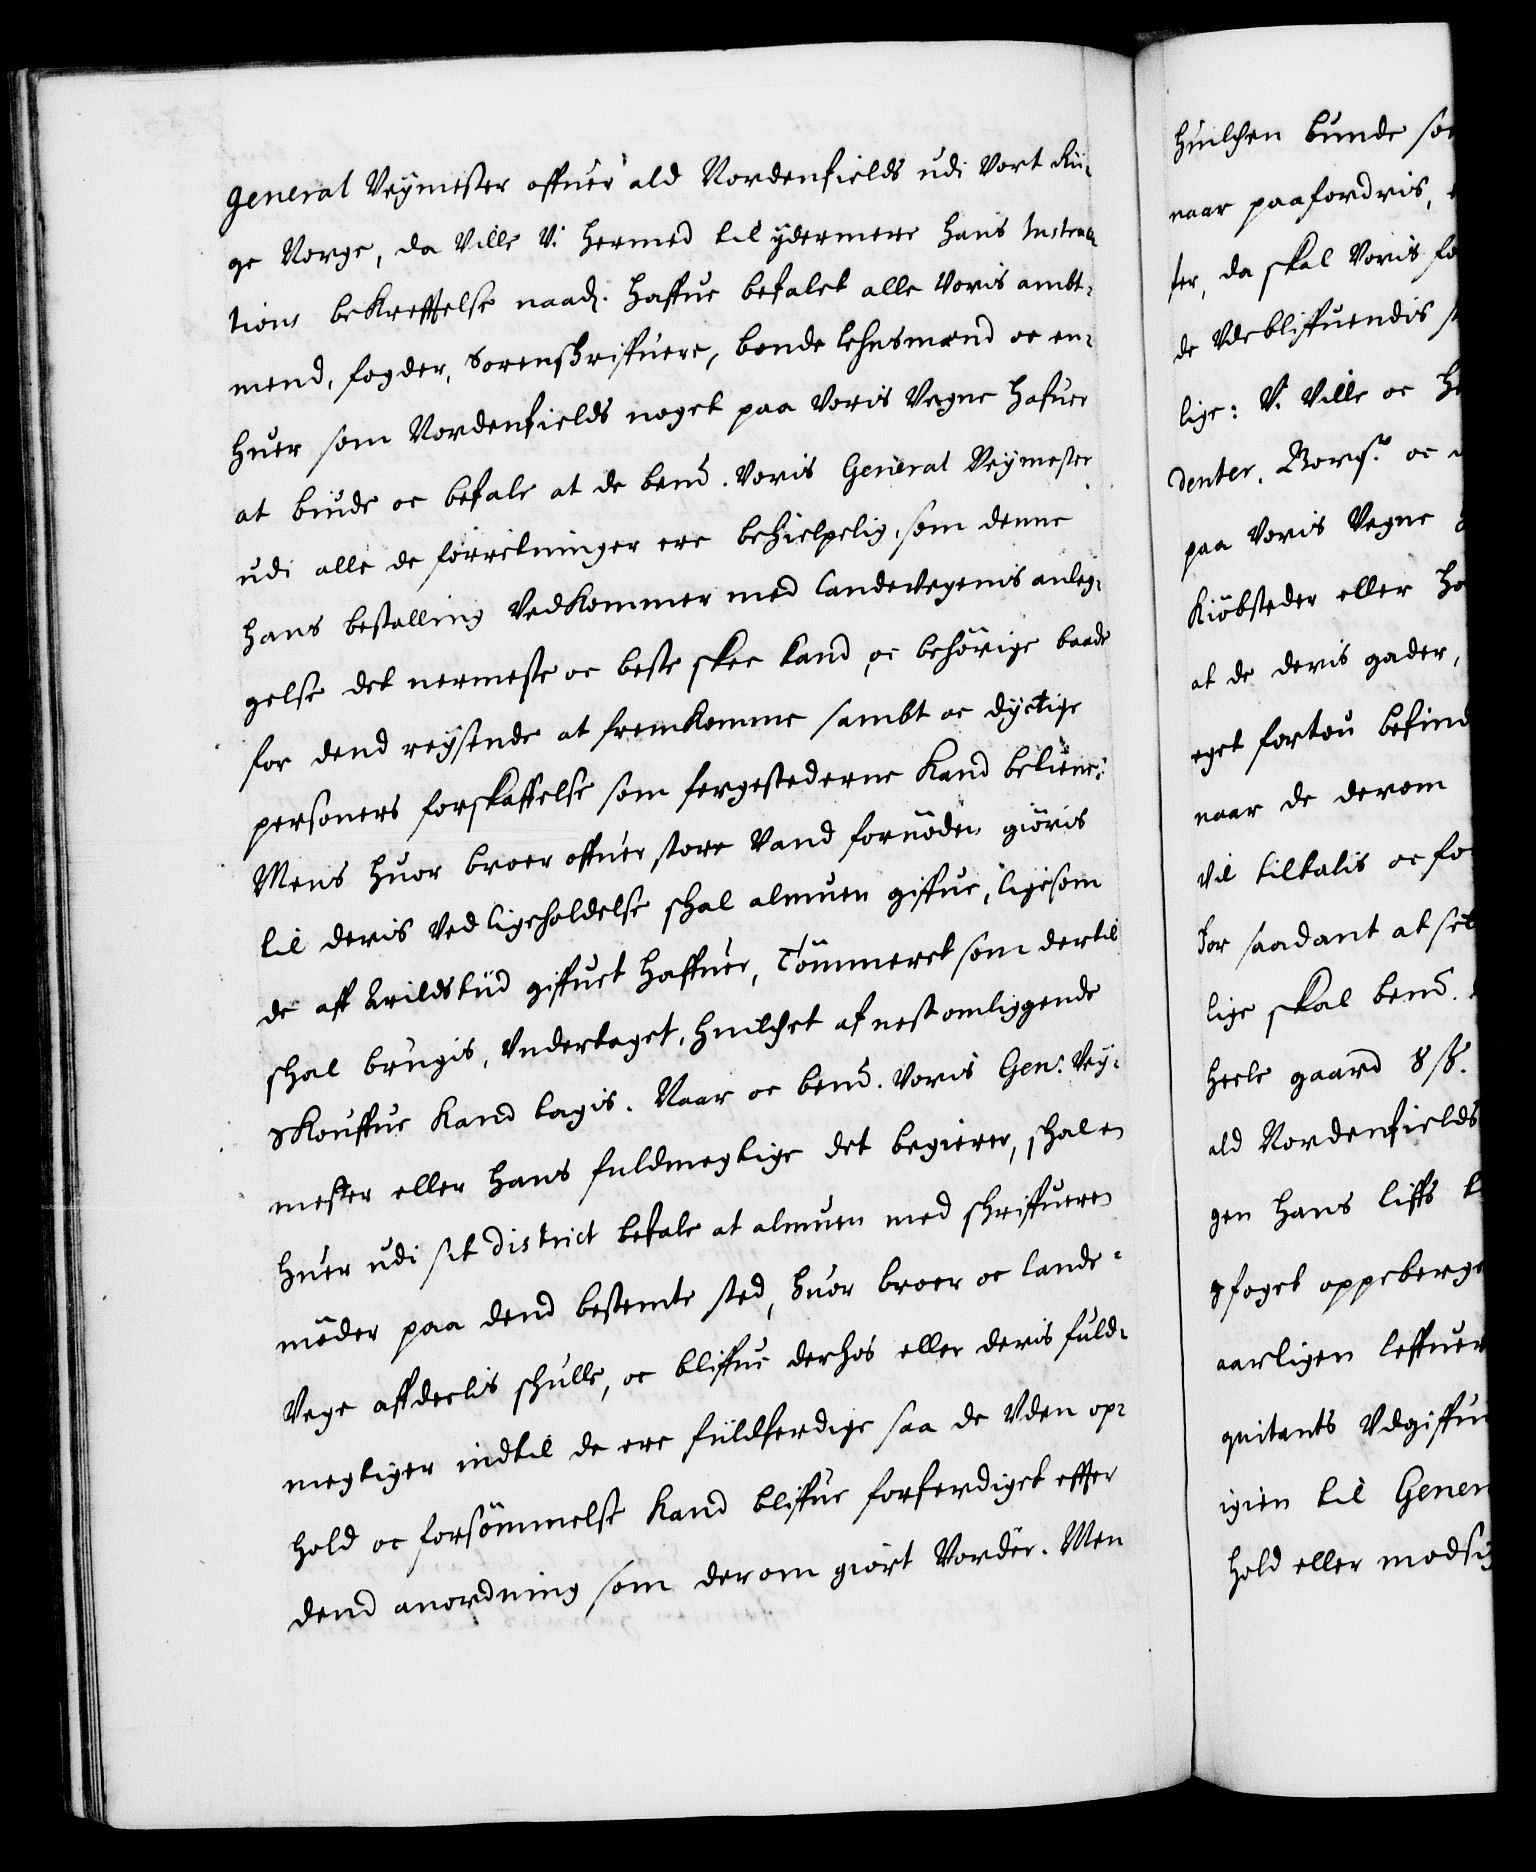 General Veÿmester offuer ald Nordenfields udi Vort Rii-
ge Norge, da Ville Vi hermed til ÿdermere hans Instruc-
tions bekrefftelse naad. haffue befalet alle Voris ambt-
mend, fogder, Sorenskriffuere, bonde lehnsmænd oc en-
huer som Nordenfields noget paa Voris Vegne hafuer
at biude oc befale at de bemt. Voris General Veÿmester
udi alle de forretninger ere behielpelig, som denne
hans bestalling Vedkommer med landevegenis anleg-
gelse det nermeste oc beste skee kand, oc behörige baade
for dend reÿsende at fremkomme sambt oc dÿctige
personers forskaffelse som fergestederne kand betiene:
Mens huor broer offuer store Vand fornöden giöris
til deris Vedligeholdelse schal almuen giffue, ligesom
de aff Arildstiid giffuet haffuer, Tömmeret som dertil
schal brugis, Undertaget, huilchet af nest omliggende
Skouffue kand tagis. Naar oc bemt. Voris Gen: Veÿ-
mester eller hans fuldmegtige det begierer, schal en
huer udi sit District befale at almuen med schriffueren
möder paa dend bestemte sted, huor broer oc lande-
Vege affdeelis schulle, oc bliffue derhos eller deris fuld-
megtiger indtil de ere fuldferdige saa de Uden op-
hold oc forsömmelse kand bliffue forferdiget effter
dend anordning som derom giort Vorder. Men
huilchen bunde so
naar paafordris,
ter, da skal Voris fo
de Udebliffuendis
lige: Vi Ville oc he
denter, Borg. oc
paa Voris Vegne
Kiöbsteder eller ha
at de deris gader,
eget fortou befind
naar de derom
Vil tiltalis oc fo
for saadant at
lige skal bemt.
heele gaard 8 ß.
ald Nordenfields
gen hans liffs
foget oppeberge
aarligen leffuer
quitants Udgiffue
igien til Gener
hold eller modsi